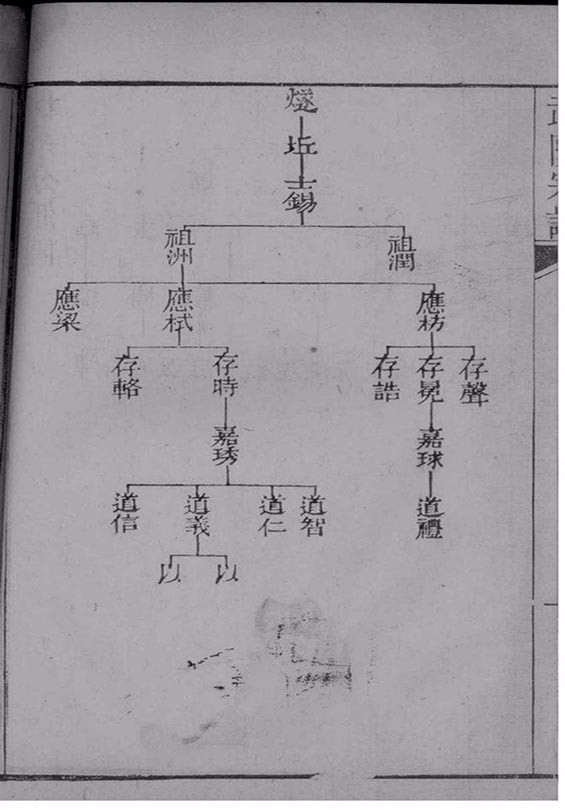 燧
坵
士錫
祖潤
祖洲
應枋
應栻
應梁
存聲
存冕
存誥
存時
存輅
嘉球
嘉琇
道禮
道智
道仁
道義
道信
以
以